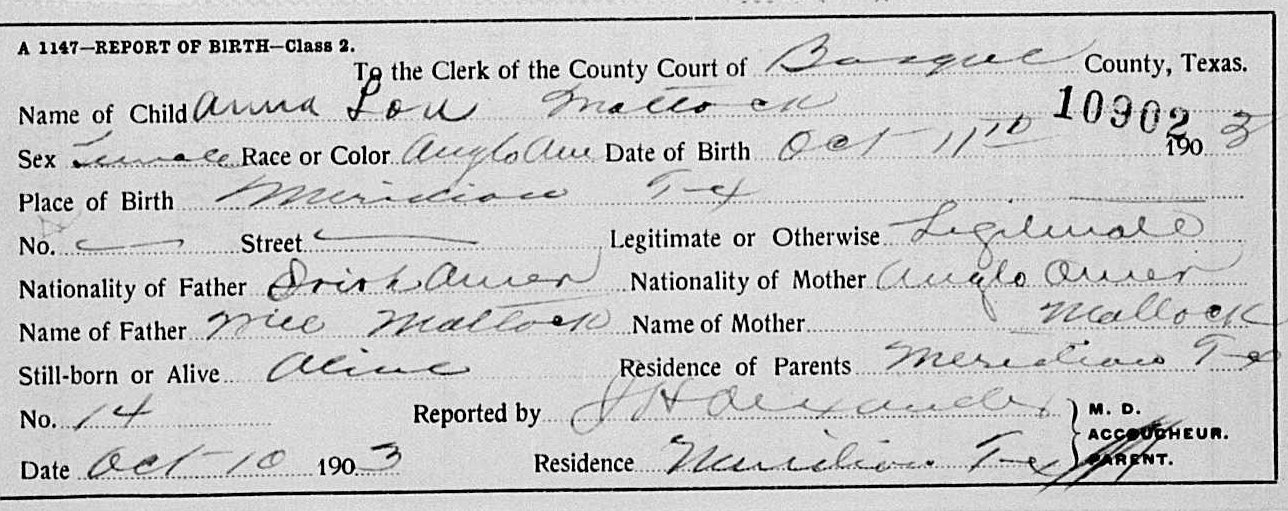 A 1147—REPORT OF BIRTH—Class 2.
To the Clerk of the County Court of Bosque County, Texas.
Name of Child Anna Lou Mattock 10902
Sex Female Race or Color Anglo Ame Date of Birth Oct 11th 1903
Place of Birth Meridian Tex
No. Street Legitimate or Otherwise Legitimate
Nationality of Father Irish Amer Nationality of Mother Anglo Amer
Name of Father Will Mattock Name of Mother Mattock
Still-born or Alive Alive Residence of Parents Meridian Tex
No. 14 Reported by J H Alexander M. D.
ACCOUCHEUR.
Date Oct 10 1903 Residence Meridian Tex PARENT.